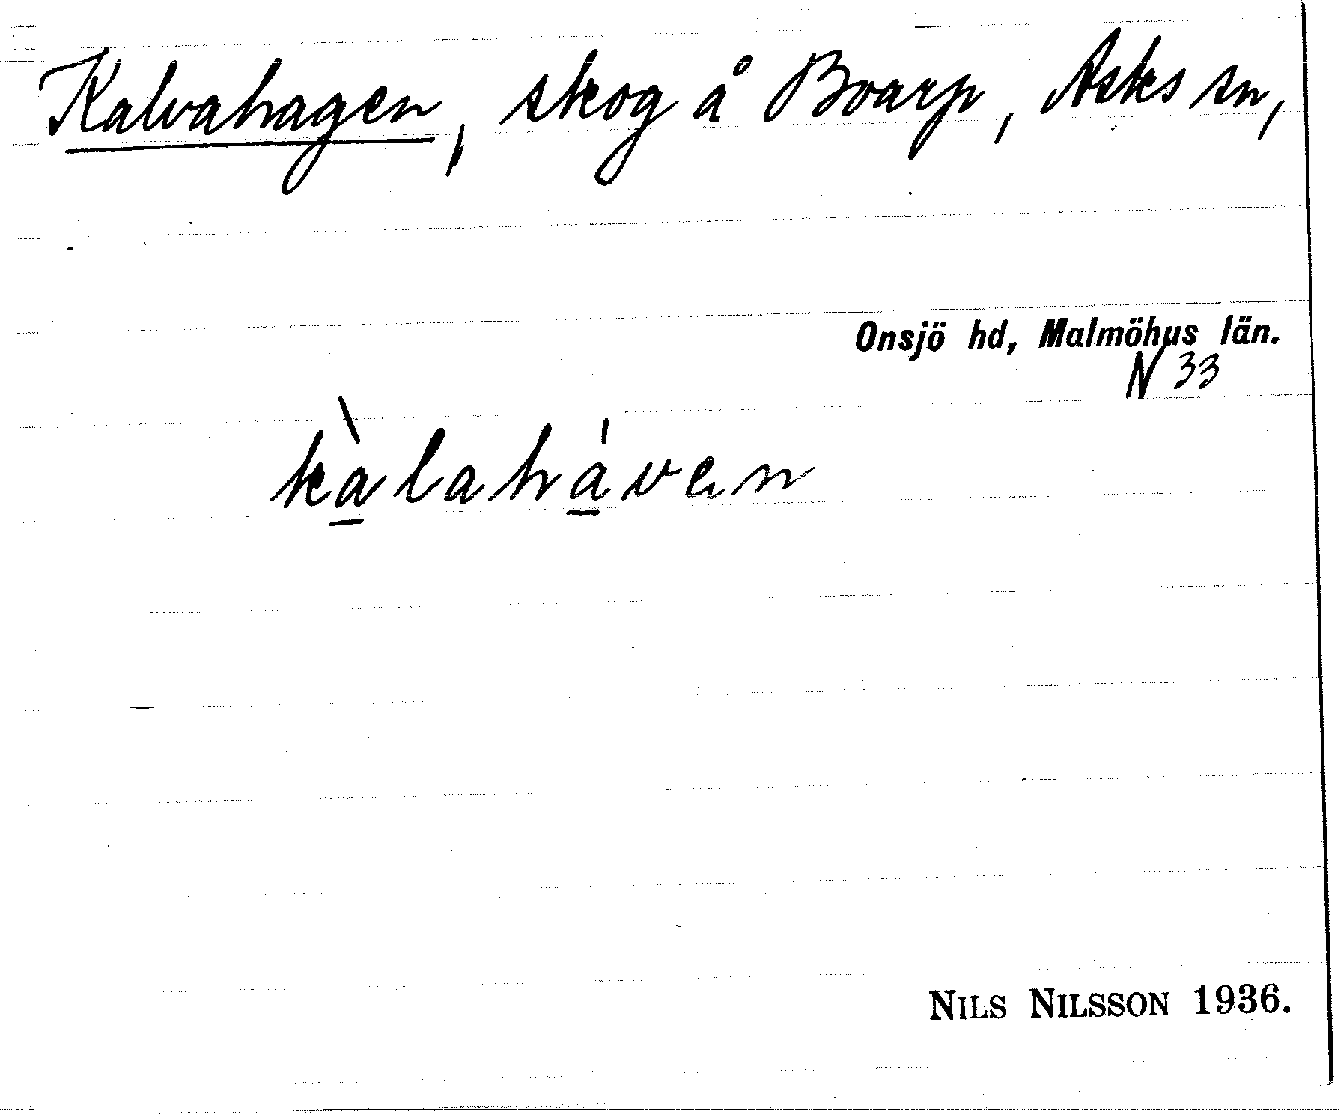 Kalvahagen, skog å Boarp, Asks sn,
Onsjö hd, Malmöhus län.
N 33
kàlaháven
NILS NILSSON 1936.